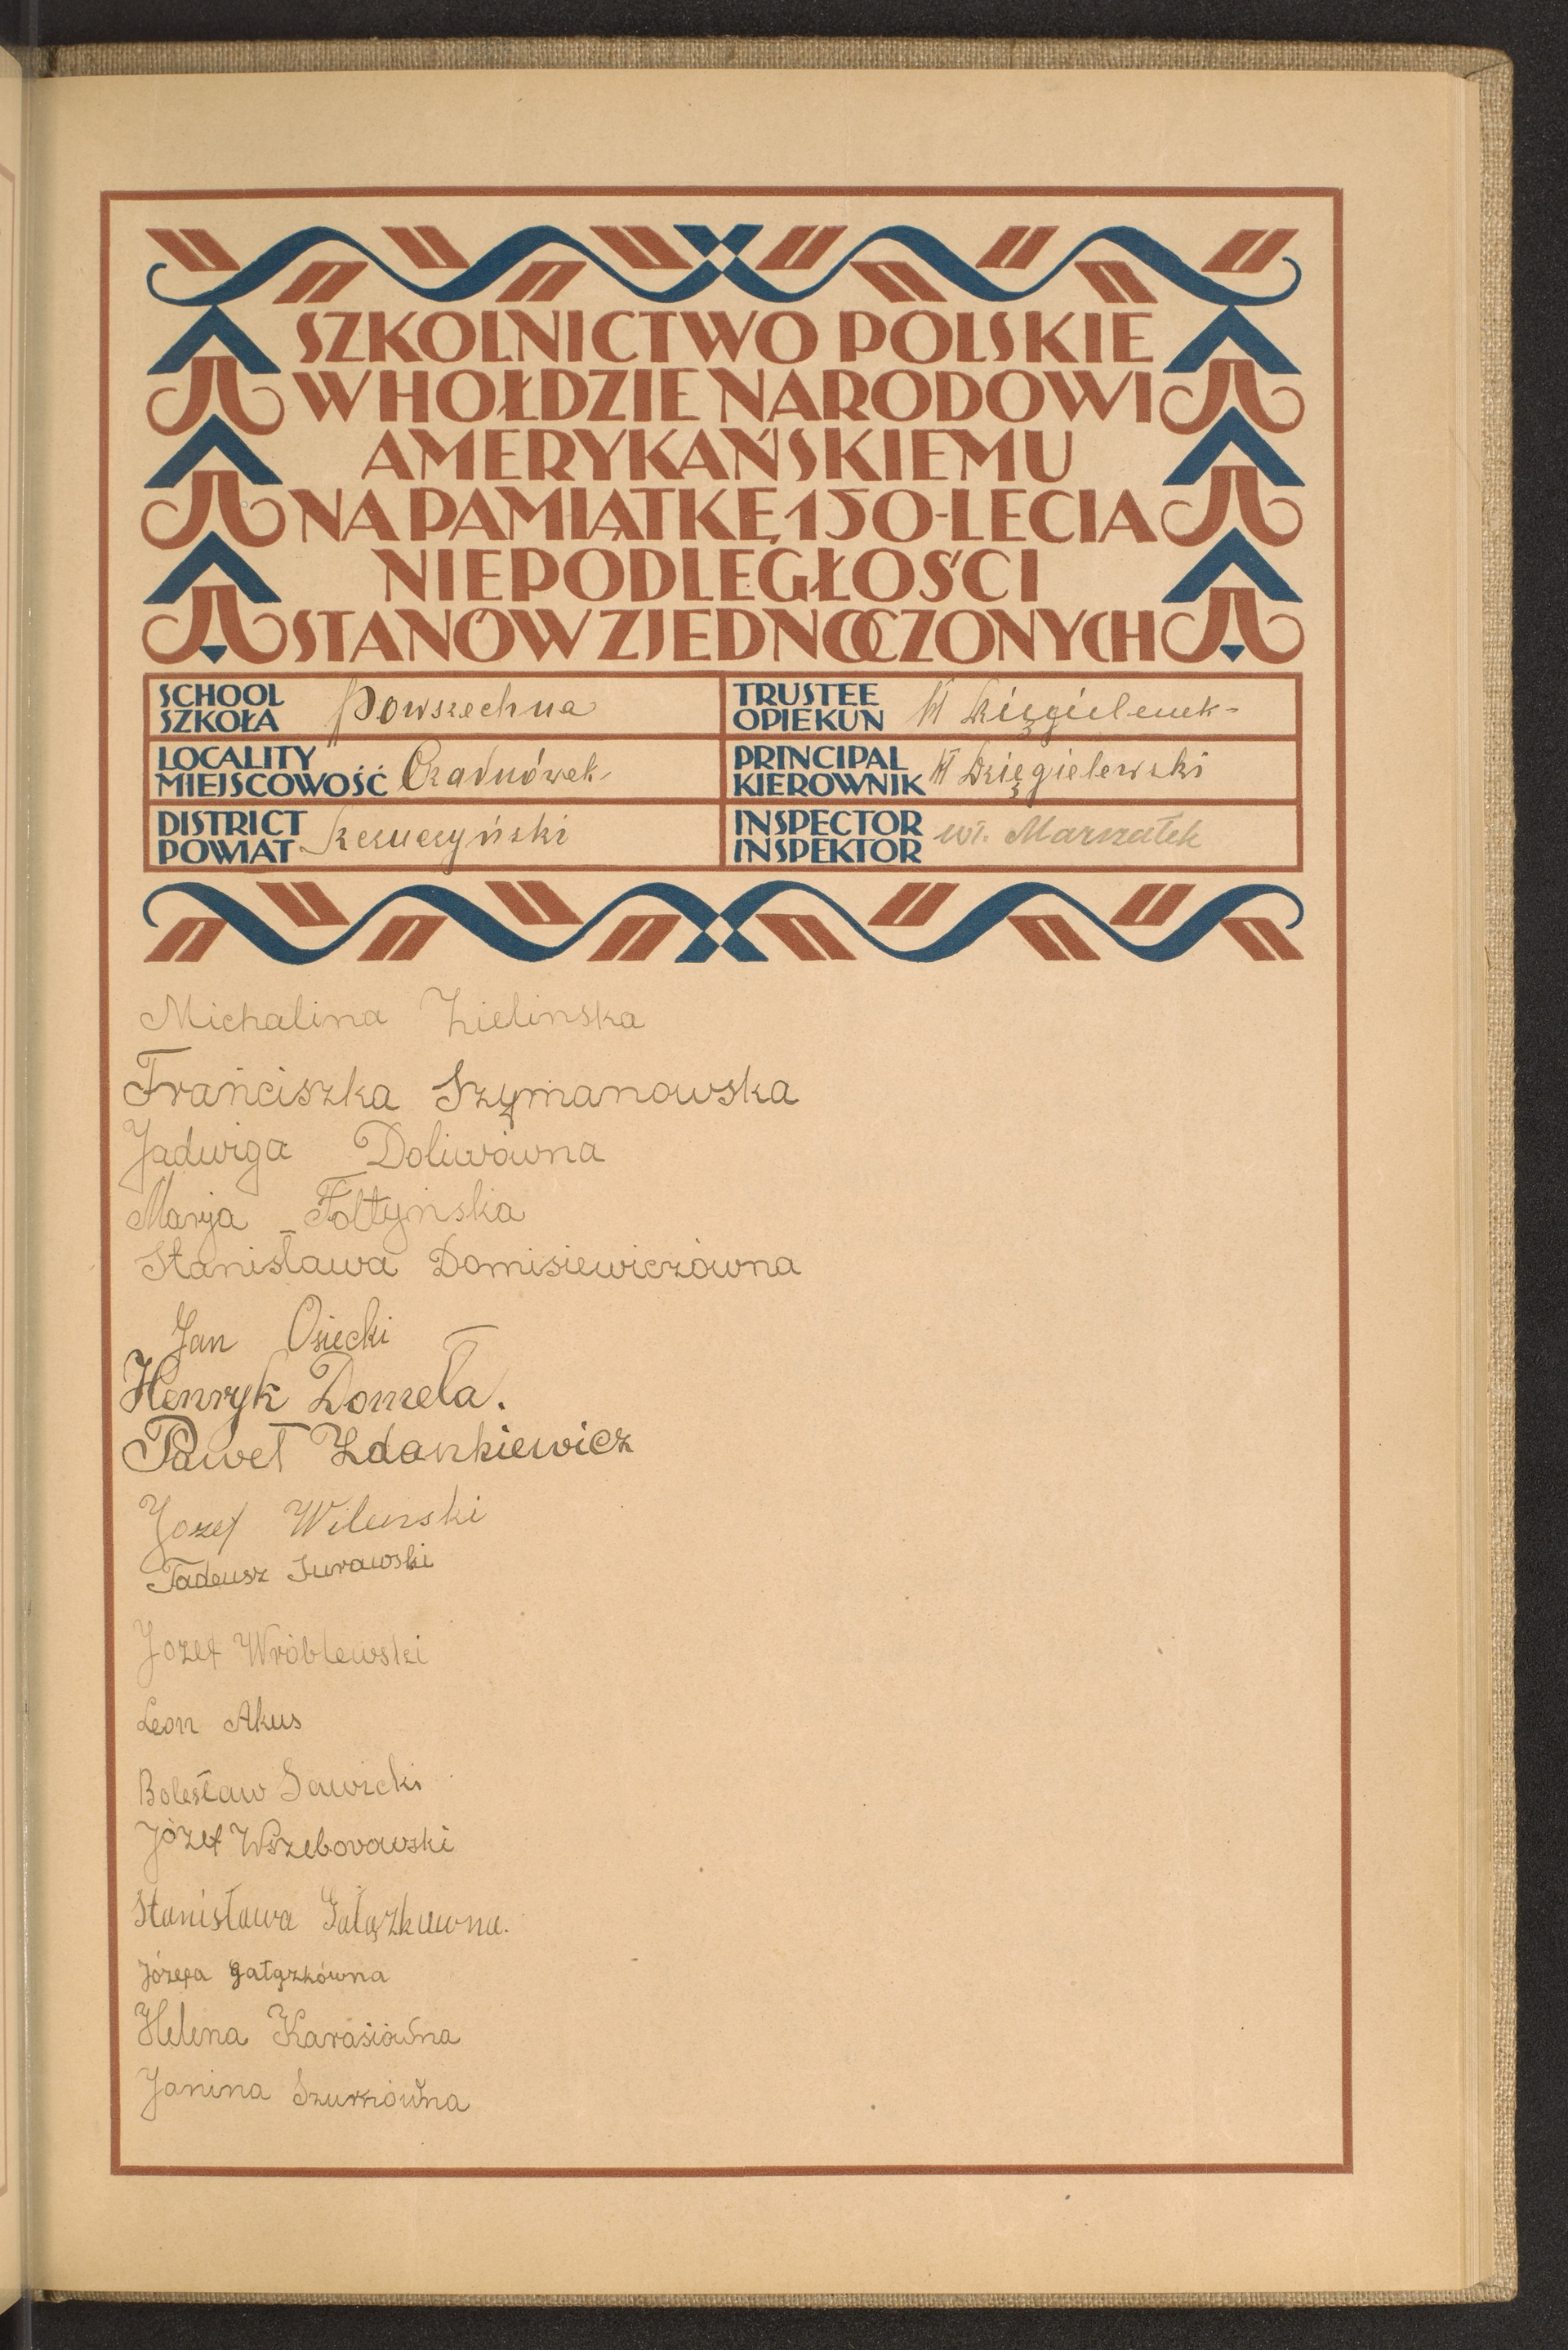 SZKOLNICTWO POLSKIE
W HOŁDZIE NARODOWI
AMERYKAŃSKIEMU
NA PAMIĄTKĘ 150-LECIA
NIEPODLEGŁOŚCI
STANÓW ZJEDNOCZONYCH
SCHOOL
SZKOŁA Powszechna
TRUSTEE
OPIEKUN
LOCALITY
MIEJSCOWOŚĆ
PRINCIPAL
KIEROWNIK W Dzięgielewski
DISTRICT
POWIAT
INSPECTOR
INSPEKTOR Wł. Marszałek
Michalina Zielinska
Franciszka Szymanowska
Jadwiga Doliwówna
Marja Fołtyńska
Stanisława Domisiewiczówna
Jan Osiecki
Henryk Domeła.
Paweł Zdankiewicz
Jozef Wilenski
Tadeusz Jurawski
Jozef Wróblewski
Leon Akus
Bolesław Sawicki
Józef Wszeborowski
Stanisława Gałązkuwna.
Józefa Gałązkówna
Helena Karasiówna
Janina